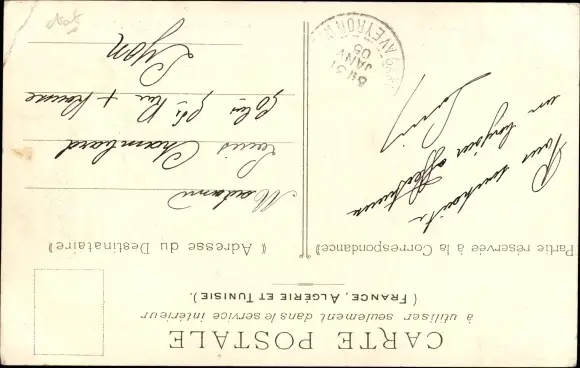 CARTE POSTALE
à utiliser seulement dans le service intérieur
(FRANCE, ALGÉRIE ET TUNISIE).
Partie réservée à la Correspondance»
« Adresse du Destinataire»
Pour souhaiter
un bonjour affectueux
Louis
Madame
Louis Chambard
Lyon
8H 51
JANV
05
AVEYRON